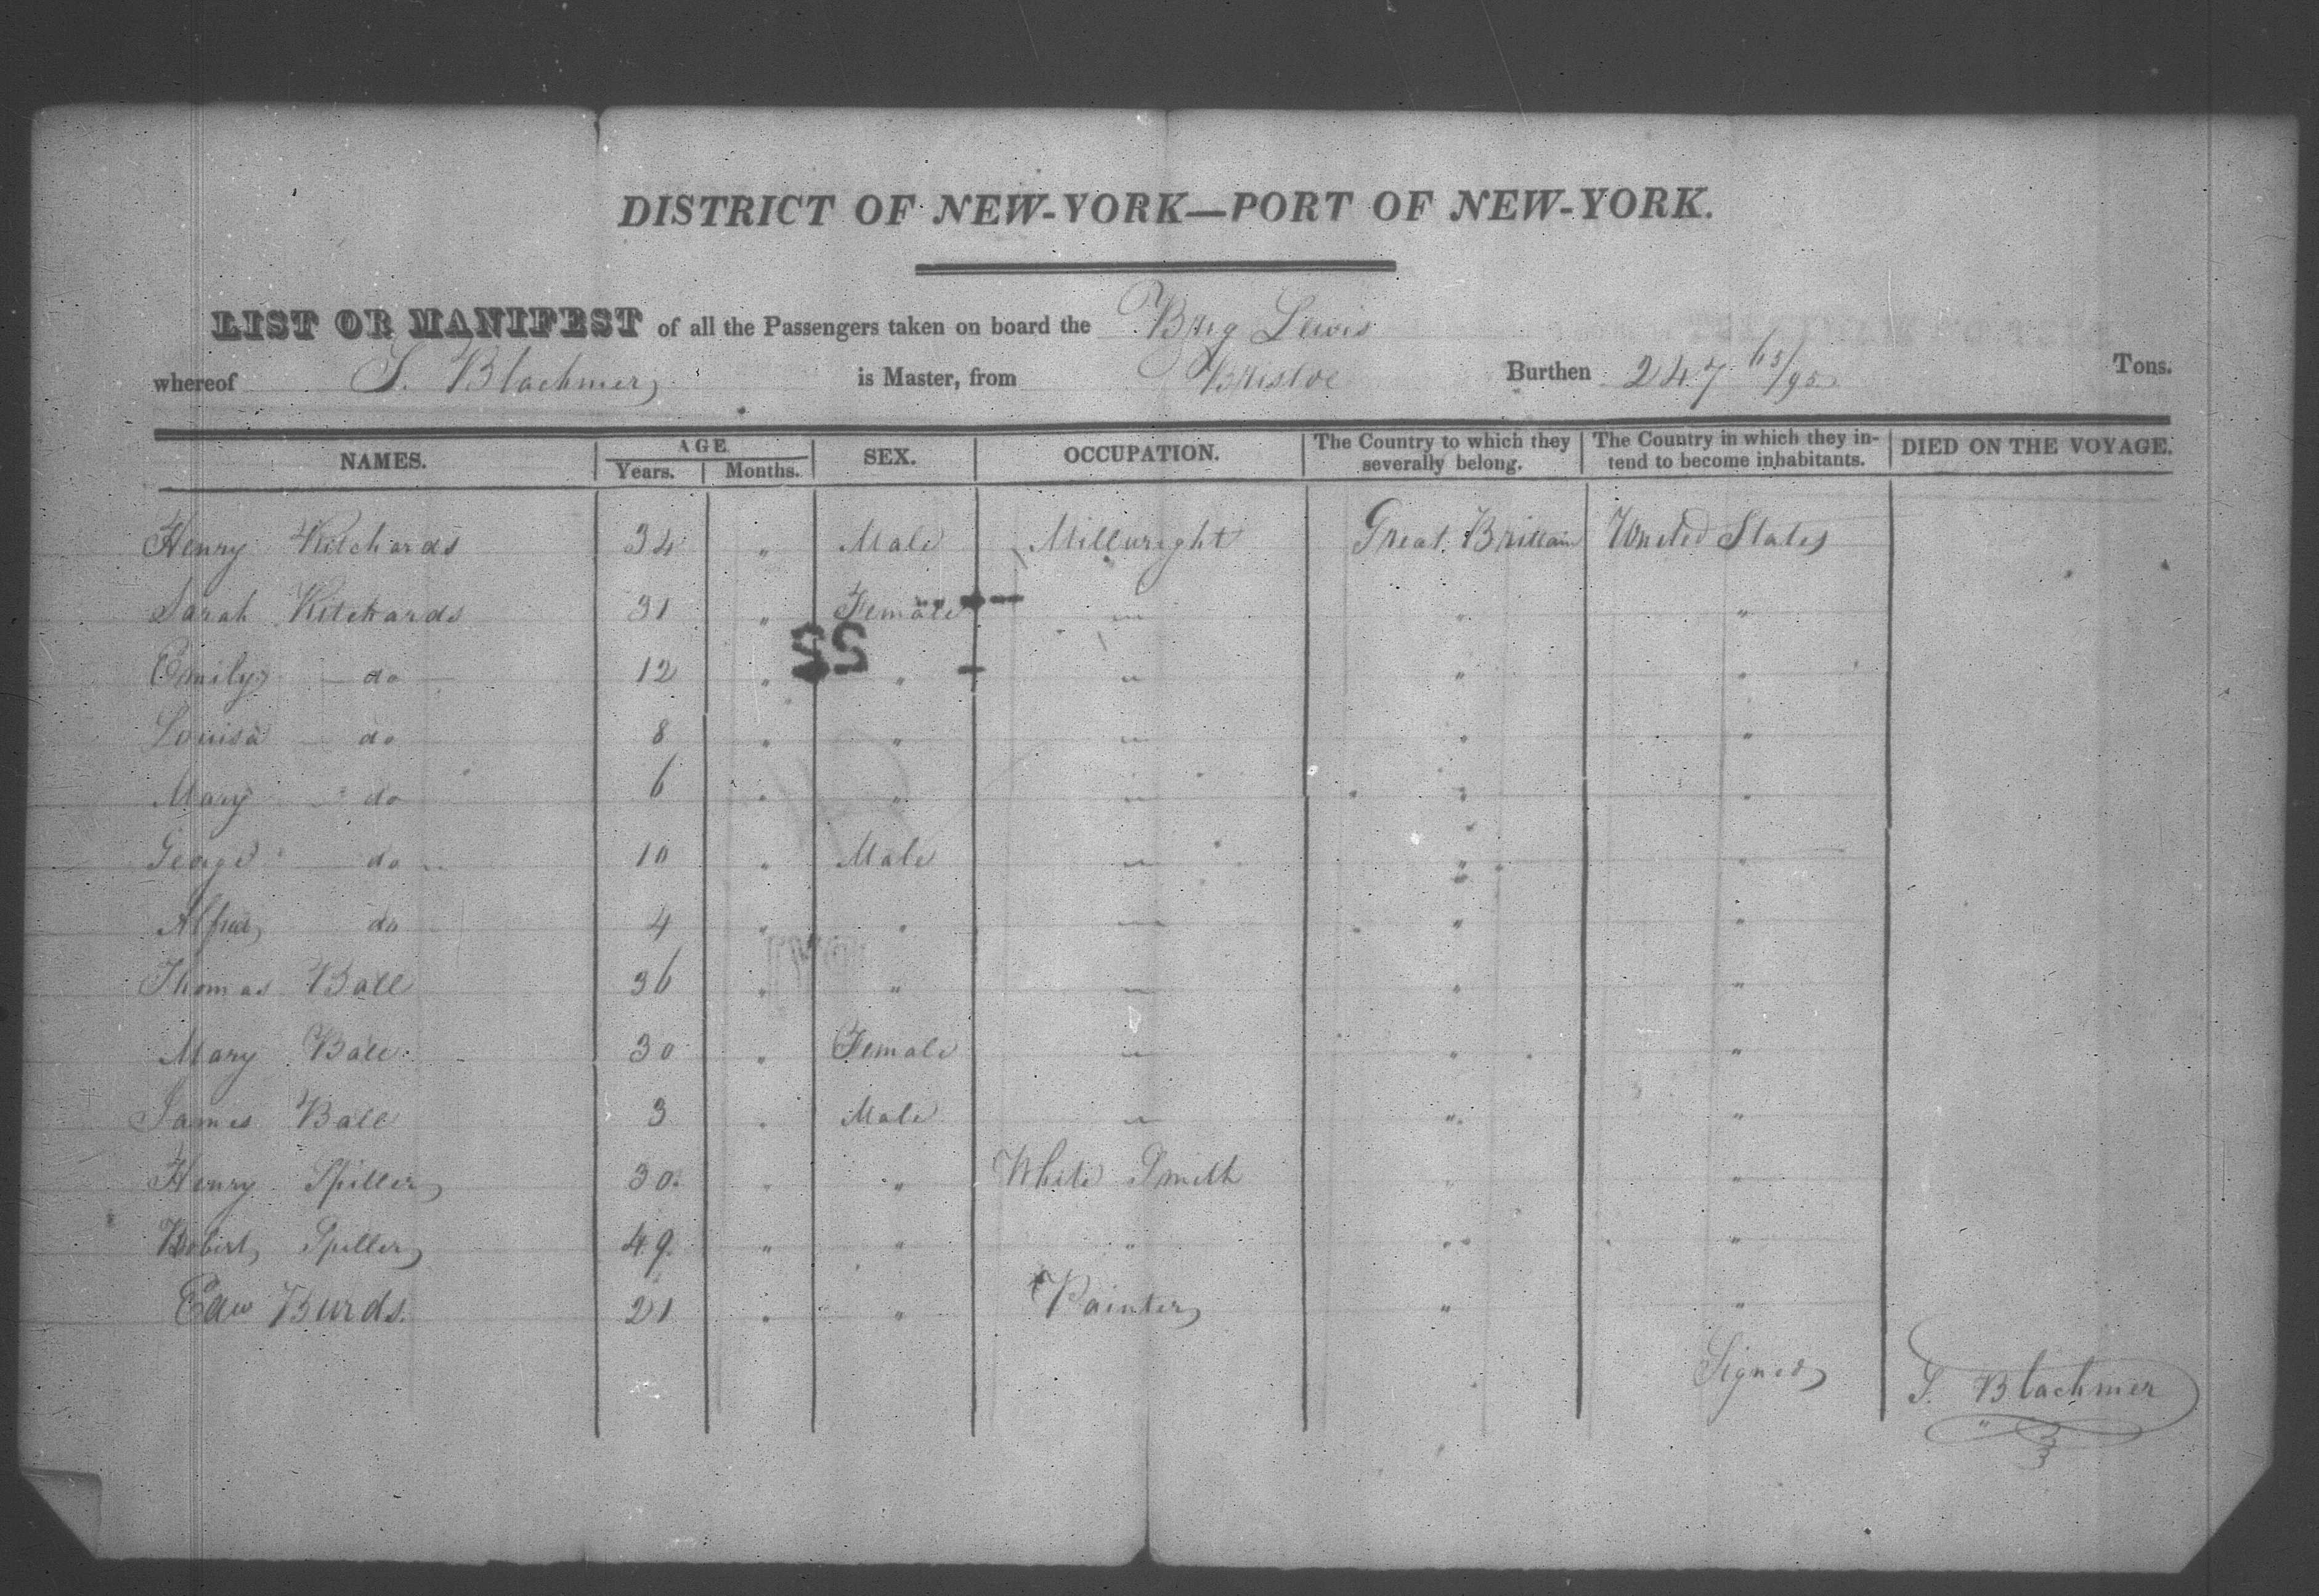 DISTRICT OF NEW-YORK—PORT OF NEW-YORK.
LIST OR MANIFEST of all the Passengers taken on board the Brig Lewis
whereof S. Blachmer is Master, from Bristol Burthen 247 65/95 Tons.
NAMES. AGE Years. Months. SEX. OCCUPATION. The Country to which they severally belong. The Country in which they intend to become inhabitants. DIED ON THE VOYAGE.
Henry Richards 34 " Male Millwright Great Brittain United States
Sarah Richards 31 " Female " " "
Emily do 12 " " " " "
Louisa do 8 " " " " "
Mary do 6 " " " " "
George do 10 " Male " " "
Alfred do 4 " " " " "
Thomas Ball 36 " " " " "
Mary Ball 30 " Female " " "
James Ball 3 " Male " " "
Henry Spiller 30 " " White Smith " "
Robert Spiller 49 " " " " "
Edw Burds. 21 " " Painter " "
Signed S. Blachmer